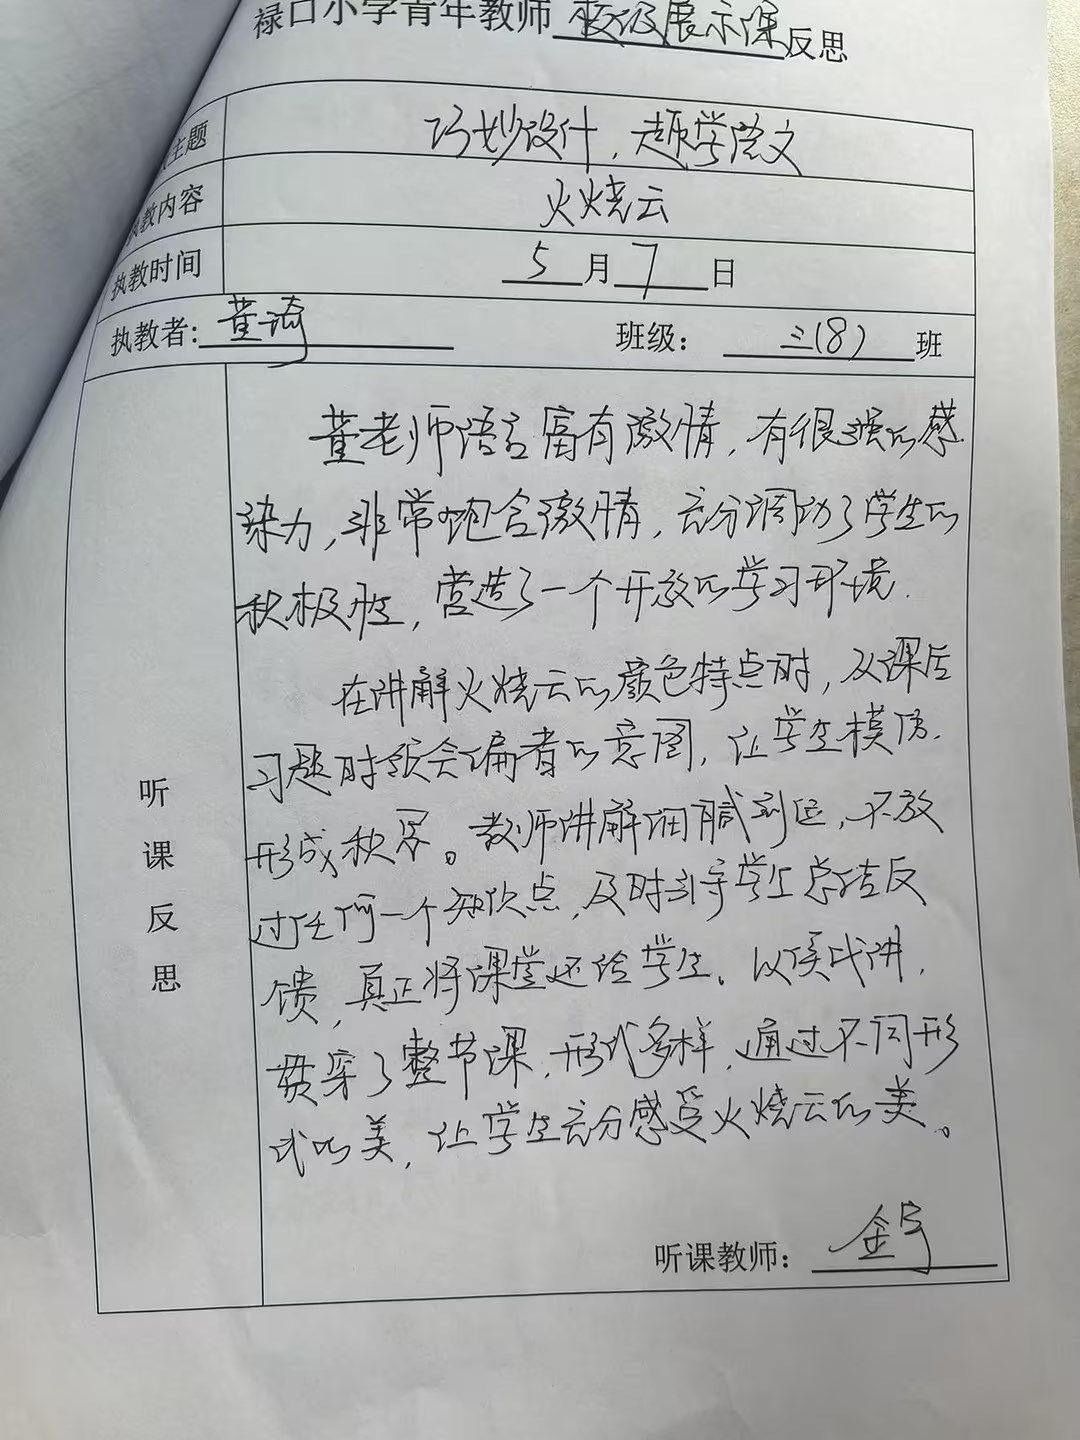 禄口小学青年教师校级展示课反思
主题 巧妙设计，趣学课文
执教内容 火烧云
执教时间 5月7日
执教者：董琦 班级： 三（8）班
听课反思
董老师语言富有激情，有很强的感
染力，非常饱含激情，充分调动了学生的
积极性，营造了一个开放的学习环境.
在讲解火烧云的颜色特点时，从课后
习题时领会编者的意图，让学生模仿.
形成积累。教师讲解细腻到位，不放
过任何一个知识点，及时引导学生总结反
馈，真正将课堂还给学生。以读代讲，
贯穿了整节课，形式多样，通过不同形
式的美，让学生充分感受火烧云的美。
听课教师：金